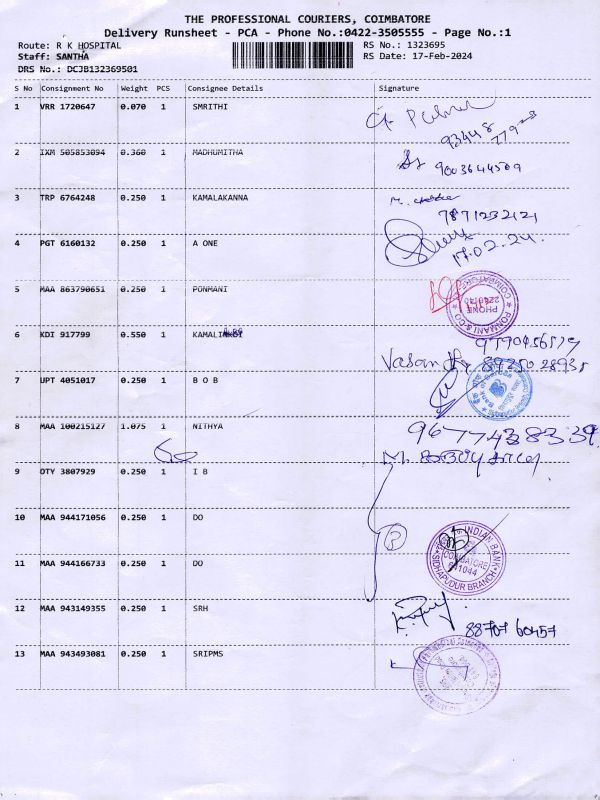 THE PROFESSIONAL COURIERS, COIMBATORE
Delivery Runsheet - PCA - Phone No.:0422-3505555 - Page No.:1
Route: R K HOSPITAL RS No.: 1323695
Staff: SANTHA RS Date: 17-Feb-2024
DRS No.: DCJB132369501
S No Consignment No Weight PCS Consignee Details Signature
1 VRR 1720647 0.070 1 SMRITHI
93448
77928
2 IXM 505853094 0.360 1 MADHUMITHA
9003644509
3 TRP 6764248 0.250 1 KAMALAKANNA
7871232121
4 PGT 6160132 0.250 1 A ONE
17.02.24.
5 MAA 863790651 0.250 1 PONMANI
PONMANI & CO COIMBATORE
PHONE
6 KDI 917799 0.550 1
9790456579
89250 28935
7 UPT 4051017 0.250 1 B O B
8 MAA 100215127 1.075 1 NITHYA
9677438339
9 OTY 3807929 0.250 1 I B
10 MAA 944171056 0.250 1 DO
INDIAN BANK
COIMBATORE
641044
SIDHAPUDUR BRANCH
11 MAA 944166733 0.250 1 DO
12 MAA 943149355 0.250 1 SRH
88707 60457
13 MAA 943493081 0.250 1 SRIPMS